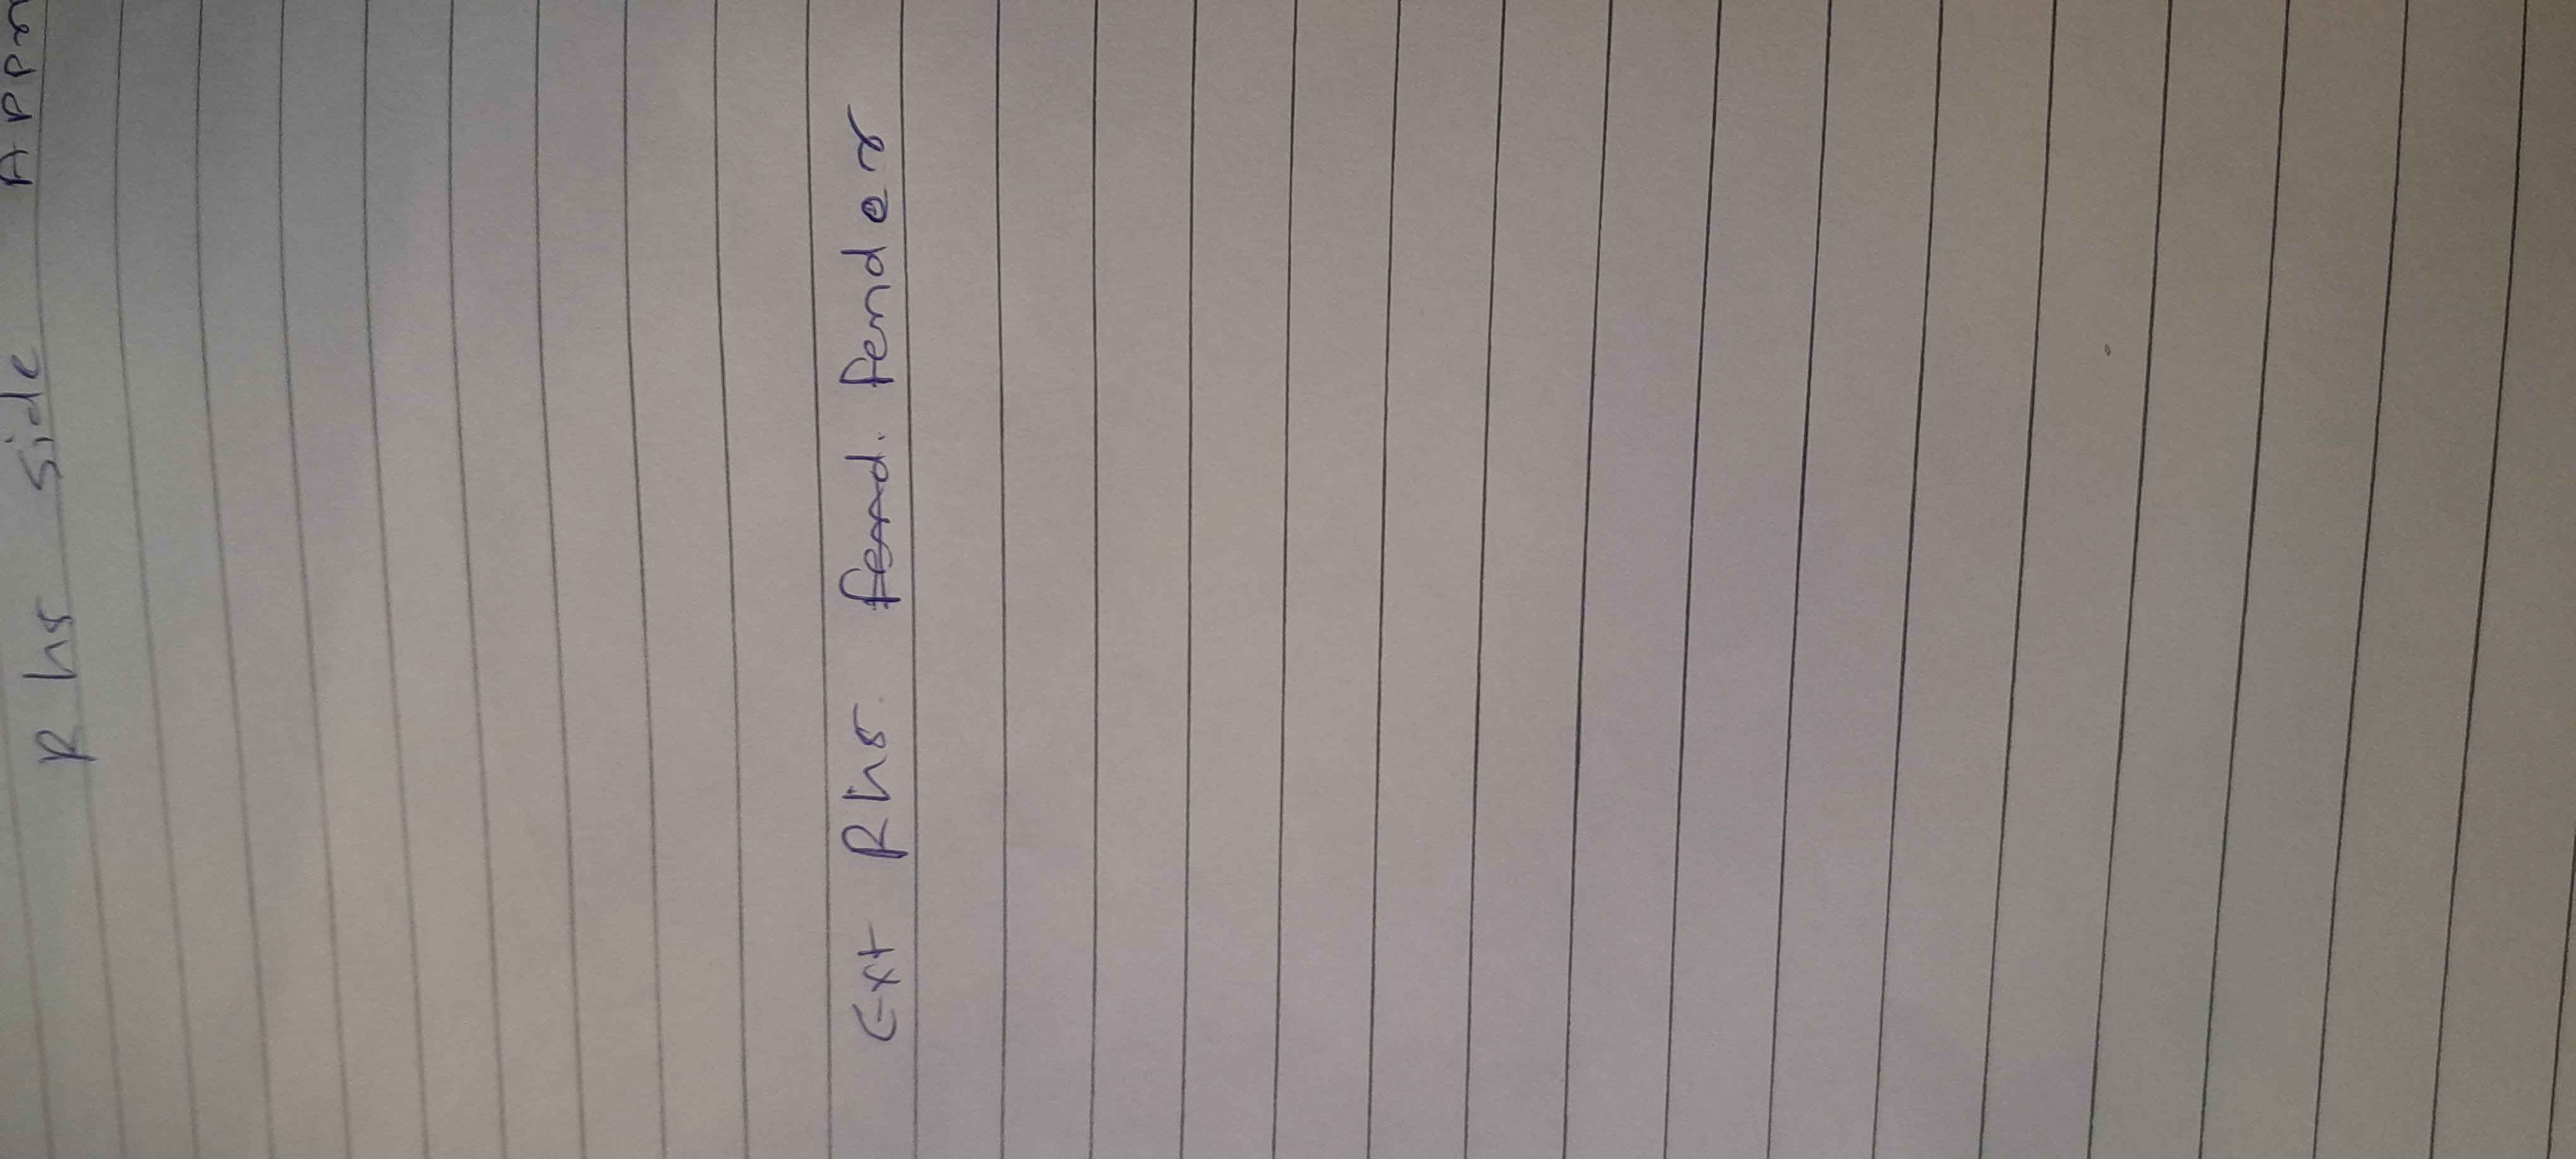 Rhs side Appr
Ext Rhs fend. fender